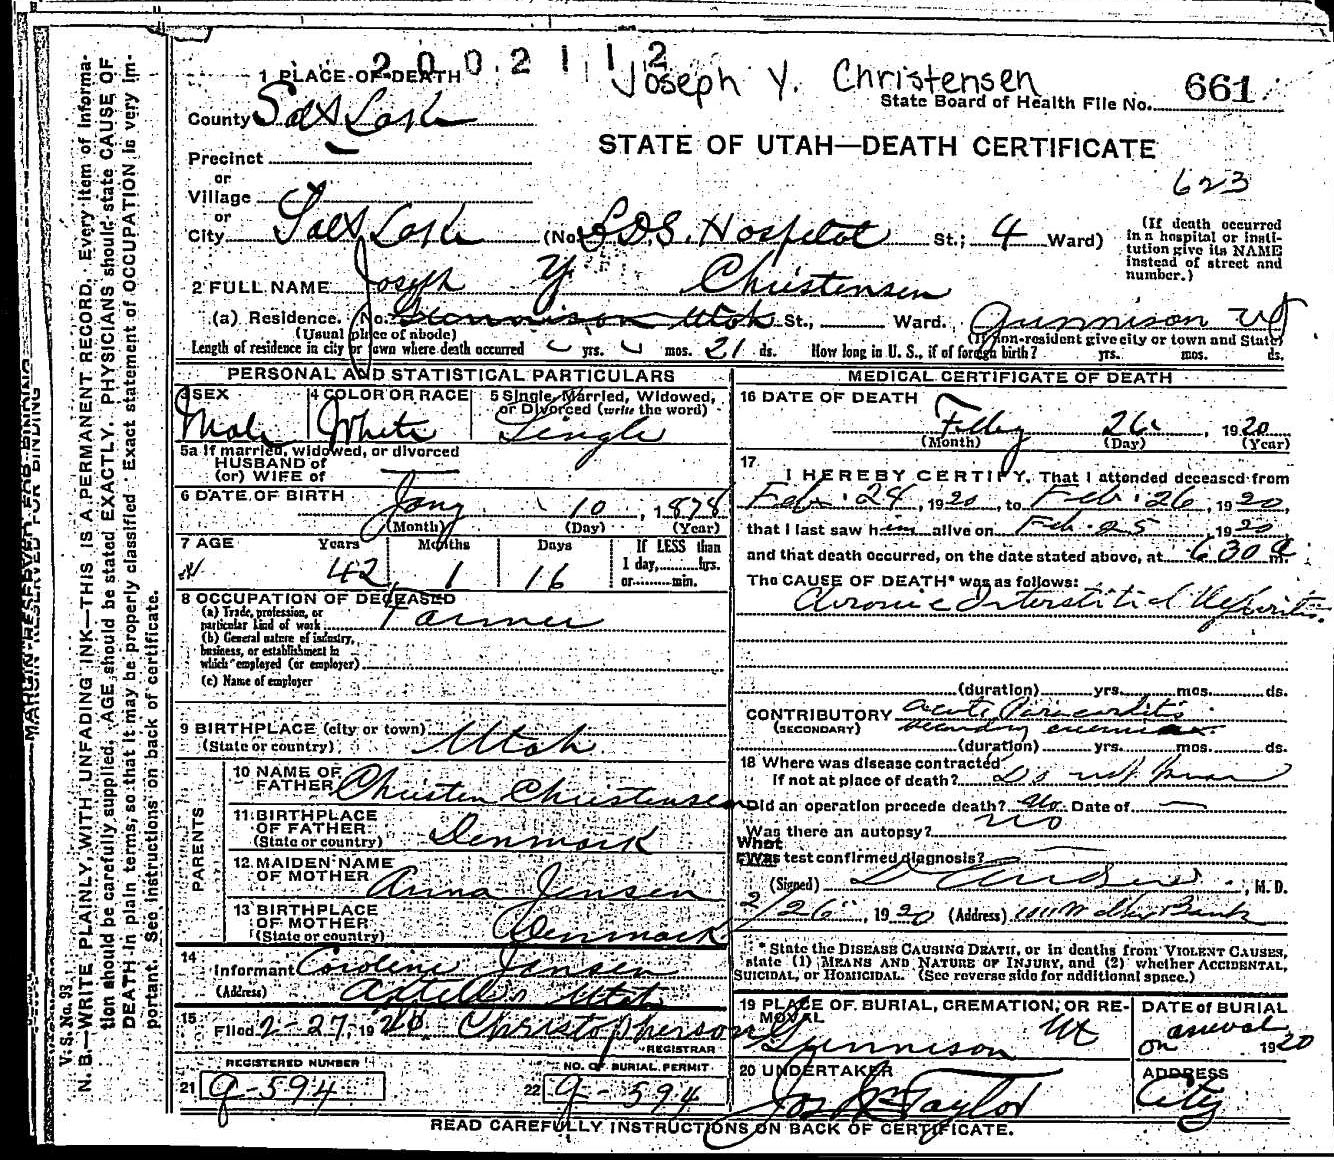 2 0 0 2 1 1 2
Joseph Y. Christensen
1 PLACE OF DEATH
State Board of Health File No. 661
County Salt Lake
STATE OF UTAH—DEATH CERTIFICATE
Precinct
or
Village
623
or
City Salt Lake (No. L.D.S. Hospital St.; 4 Ward)
(If death occurred in a hospital or institution give its NAME instead of street and number.)
2 FULL NAME Joseph Y. Christensen
(a) Residence. No. Gunnison Utah St., Ward. Gunnison Ut
(Usual place of abode) (If non-resident give city or town and State)
Length of residence in city or town where death occurred yrs. mos. 21 ds. How long in U. S., if of foreign birth? yrs. mos. ds.
PERSONAL AND STATISTICAL PARTICULARS
3 SEX Male
4 COLOR OR RACE White
5 Single, Married, Widowed, or Divorced (write the word) Single
5a If married, widowed, or divorced
HUSBAND of
(or) WIFE of
6 DATE OF BIRTH Jany 10, 1878
(Month) (Day) (Year)
7 AGE Years Months Days
If LESS than
1 day, hrs.
or min.
42 1 16
8 OCCUPATION OF DECEASED
(a) Trade, profession, or particular kind of work Farmer
(b) General nature of industry, business, or establishment in which employed (or employer)
(c) Name of employer
9 BIRTHPLACE (city or town)
(State or country) Utah
PARENTS
10 NAME OF FATHER Christen Christensen
11 BIRTHPLACE OF FATHER
(State or country) Denmark
12 MAIDEN NAME OF MOTHER Anna Jensen
13 BIRTHPLACE OF MOTHER
(State or country) Denmark
14 Informant Caroline Jensen
(Address) Axtell Utah
15 Filed 2-27 1920 Christopherson
REGISTRAR
REGISTERED NUMBER
21 9-594
NO. OF BURIAL PERMIT
22 9-594
MEDICAL CERTIFICATE OF DEATH
16 DATE OF DEATH
Feby 26, 1920
(Month) (Day) (Year)
17 I HEREBY CERTIFY, That I attended deceased from
Feb. 24, 1920, to Feb. 26, 1920,
that I last saw him alive on Feb. 25 1920
and that death occurred, on the date stated above, at 6 30 a m.
The CAUSE OF DEATH* was as follows:
Chronic Interstitial Nephritis.
(duration) yrs. mos. ds.
CONTRIBUTORY Acute Pericarditis
(SECONDARY) secondary
(duration) yrs. mos. ds.
18 Where was disease contracted
If not at place of death? Do not know
Did an operation precede death? No Date of —
Was there an autopsy? No
What test confirmed diagnosis? —
(Signed) M. D.
2/26, 1920 (Address) Bank
* State the DISEASE CAUSING DEATH, or in deaths from VIOLENT CAUSES, state (1) MEANS AND NATURE OF INJURY, and (2) whether ACCIDENTAL, SUICIDAL, or HOMICIDAL. (See reverse side for additional space.)
19 PLACE OF BURIAL, CREMATION, OR REMOVAL
Gunnison Ut
DATE of BURIAL
on arrival 1920
20 UNDERTAKER
Jos. Wm Taylor
ADDRESS
City
READ CAREFULLY INSTRUCTIONS ON BACK OF CERTIFICATE.
MARGIN RESERVED FOR BINDING
V. S. No. 93
N. B.—WRITE PLAINLY, WITH UNFADING INK—THIS IS A PERMANENT RECORD. Every item of information should be carefully supplied. AGE should be stated EXACTLY. PHYSICIANS should state CAUSE OF DEATH in plain terms, so that it may be properly classified. Exact statement of OCCUPATION is very important. See instructions on back of certificate.